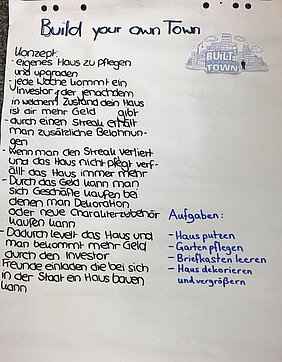 Build your own Town
BUILT
TOWN
Konzept:
- eigenes Haus zu pflegen
und upgraden
- jede Woche kommt ein
Investor, der jenachdem
in welchem Zustand dein Haus
ist dir mehr Geld gibt
- durch einen Streak erhält
man zusätzliche Belohnun-
gen
- Wenn man den Streak verliert
und das Haus nicht pflegt verf-
ällt das Haus immer mehr
- Durch das Geld kann man
sich Geschäfte kaufen bei
denen man Dekoration
oder neue Charakterzubehör
kaufen kann
- Dadurch levelt das Haus und
man bekommt mehr Geld
durch den Investor
Freunde einladen die bei sich
in der Stadt ein Haus bauen
kann
Aufgaben:
- Haus putzen
- Garten pflegen
- Briefkasten leeren
- Haus dekorieren
und vergrößern